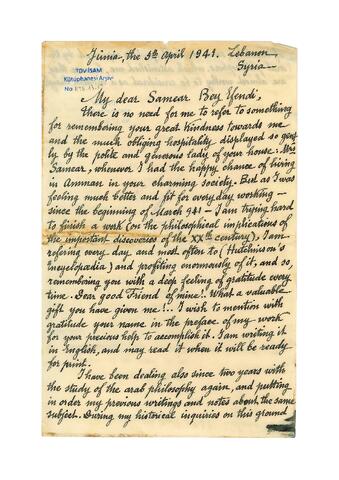 Jiunia, the 5th April 1941. Lebanon
Syria
TDV İSAM
Kütüphanesi Arşivi
No
My dear Samear Bey Efendi,
There is no need for me to refer to something
for remembering your great kindness towards me
and the much obliging hospitality displayed so gent
ly by the polite and generous lady of your house: Mrs
Samear, whenever I had the happy chance of living
in Amman in your charming society. But as I was
feeling much better and fit for everyday working -
since the beginning of March 941 - I am trying hard
to finish a work (on the philosophical implications of
the important discoveries of the XXth century). I am
refering every day, and most often to (Hutchinson's
Encyclopædia) and profiting enormously of it, and so,
remembering you with a deep feeling of gratitude every
time. Dear good Friend of mine!. What a valuable
gift you have given me!!.. I wish to mention with
gratitude your name in the preface of my work
for your precious help to accomplish it. I am writing it
in English, and may read it when it will be ready
for print.
I have been dealing also since two years with
the study of the arab philosophy again, and putting
in order my previous writings and notes about the same
subject. During my historical inquiries on this ground